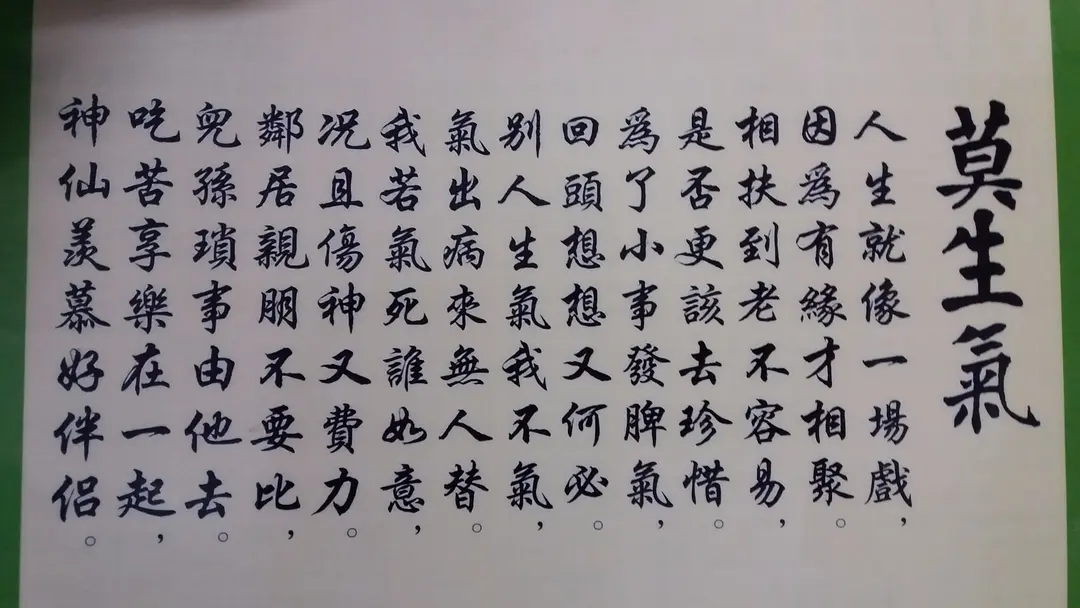 莫生氣
人生就像一場戲，
因爲有緣才相聚。
相扶到老不容易，
是否更該去珍惜。
爲了小事發脾氣，
回頭想想又何必。
别人生氣我不氣，
氣出病來無人替。
我若氣死誰如意，
况且傷神又費力。
鄰居親朋不要比，
兒孫瑣事由他去。
吃苦享樂在一起，
神仙羡慕好伴侣。